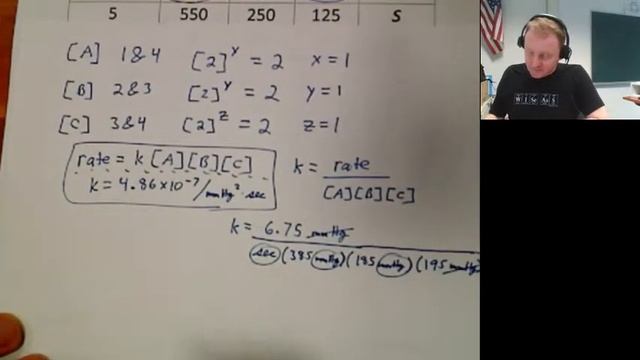 5 550 250 125 S
[A] 1&4 [2]^x = 2 x=1
[B] 2&3 [2]^y = 2 y=1
[C] 3&4 [2]^z = 2 z=1
rate = k[A][B][C]
k = 4.86×10^-7/mmHg² sec
k = rate
[A][B][C]
k = 6.75 mmHg
sec (385 mmHg)(185 mmHg)(195 mmHg)